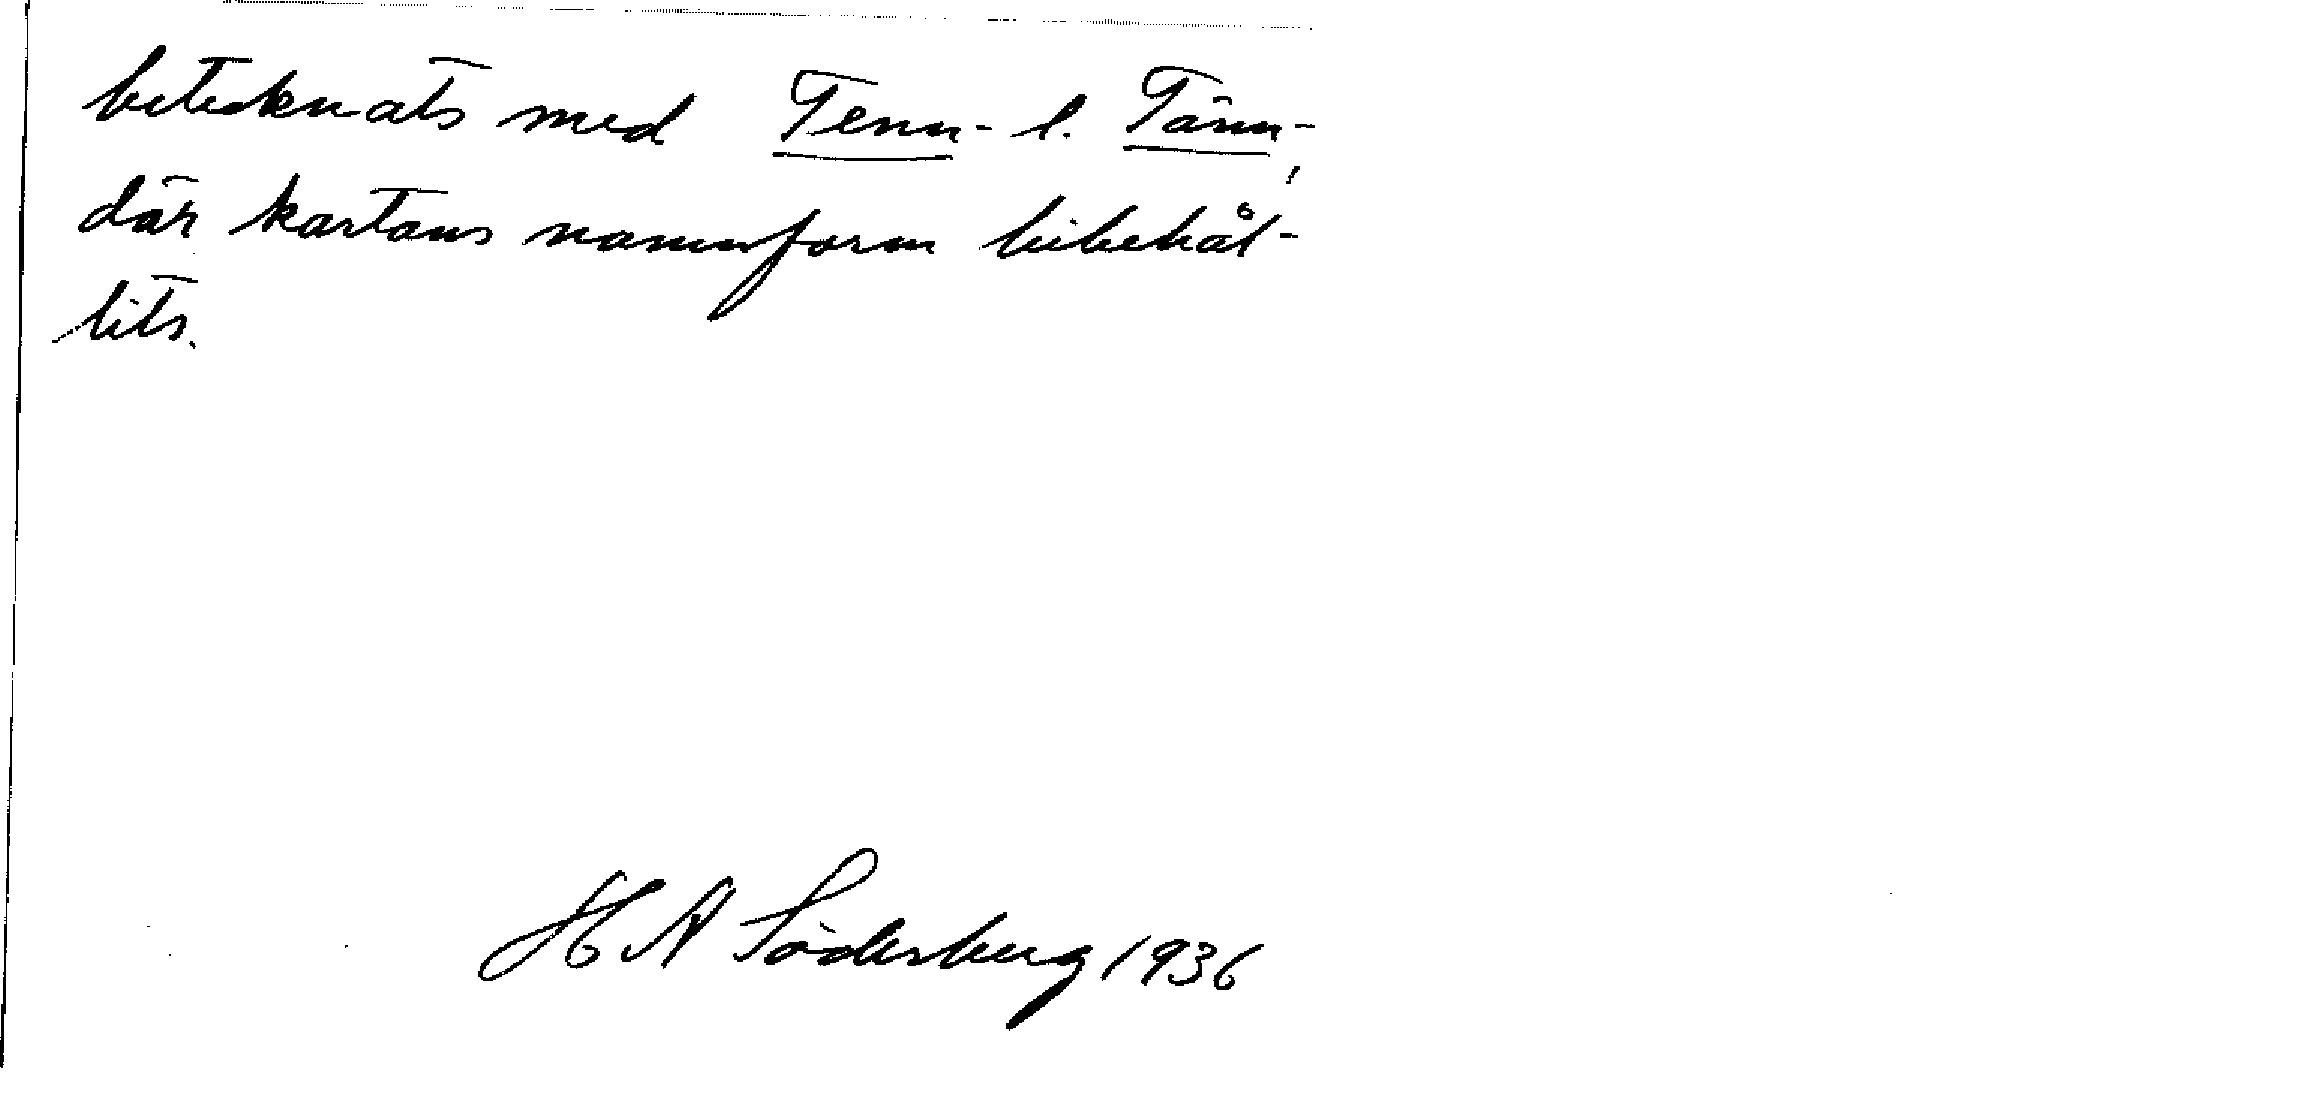 betecknats med Tenn- l. Tänn-,
där kartans namnform bibehål-
lits.
H A Söderberg 1936